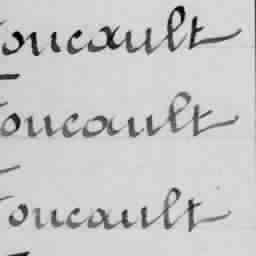 Foucault
Foucault
Foucault